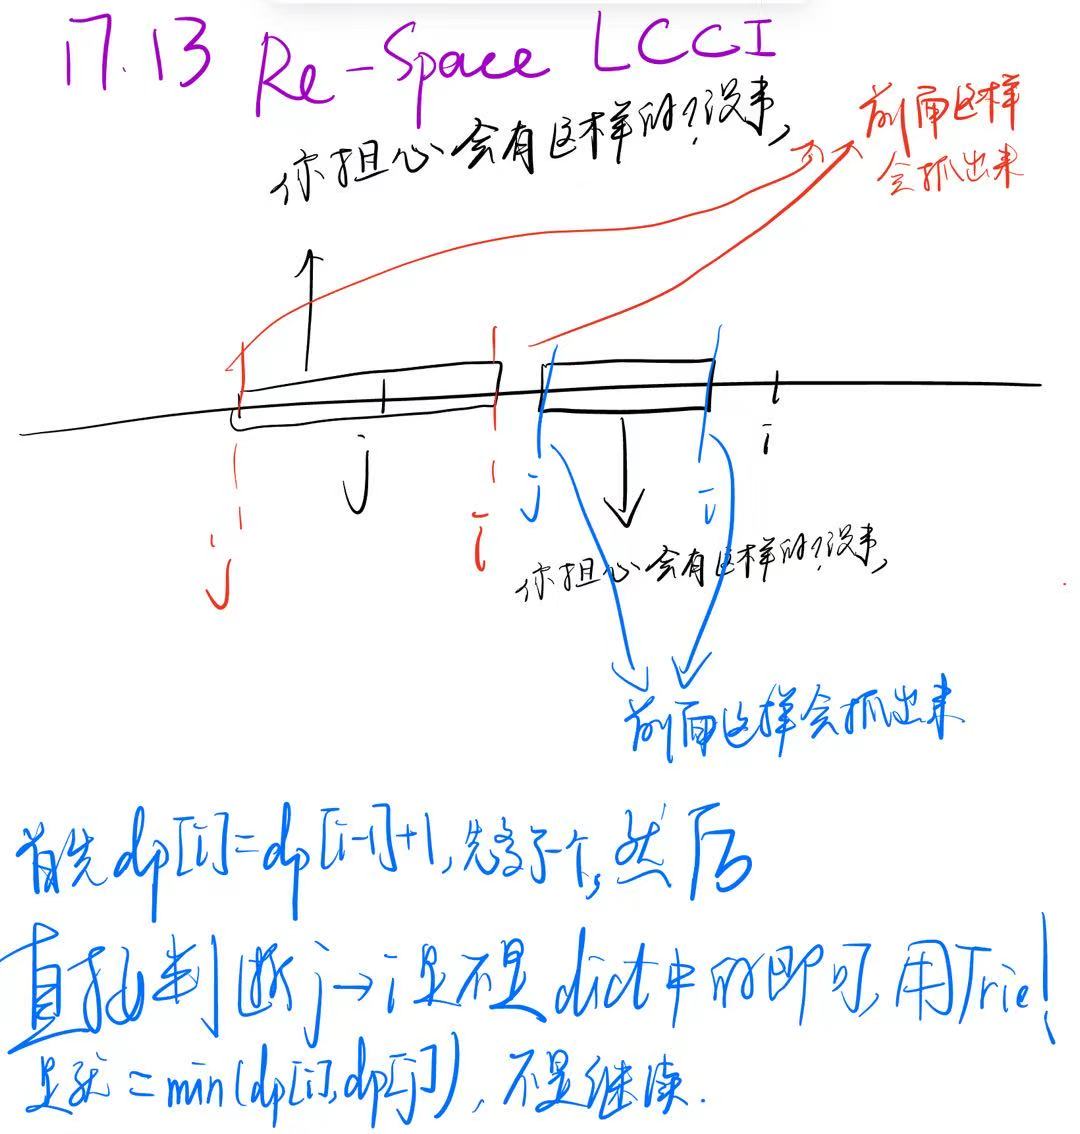 17.13 Re-Space LCCI
你担心会有这样的?没事,
前面这样
会抓出来
j
i
j
i
j
i
你担心会有这样的?没事,
前面这样会抓出来
首先dp[i]=dp[i-1]+1,先多了一个,然后
直接判断j→i是不是dict中的即可,用Trie!
是就=min(dp[i],dp[j]),不是继续.